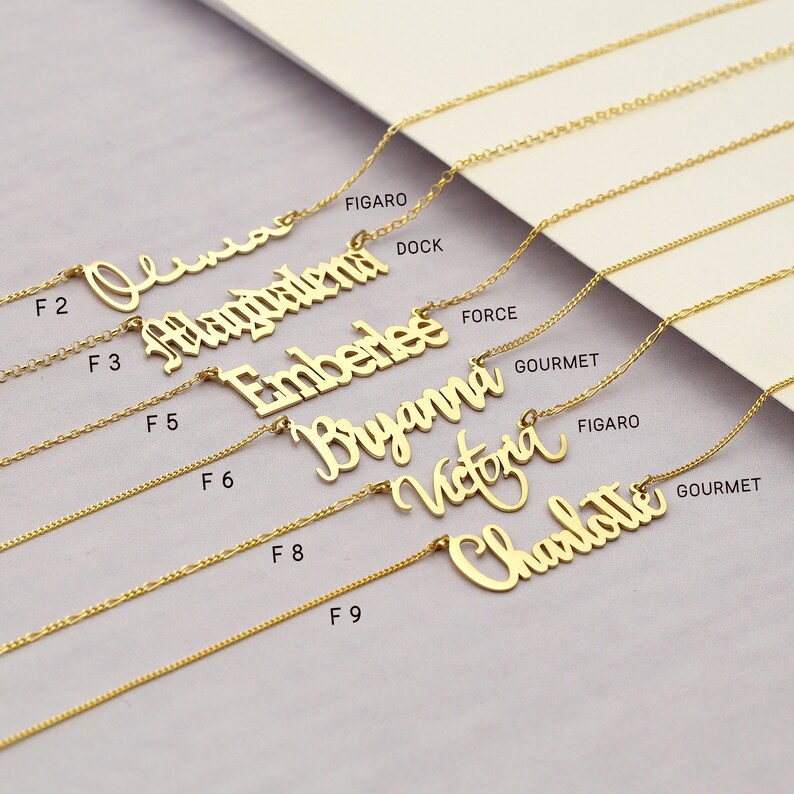 FIGARO
Olivia
F 2
DOCK
Magdalena
F 3
FORCE
Emberlee
F 5
GOURMET
Bryanna
F 6
FIGARO
Victoria
F 8
GOURMET
Charlotte
F 9